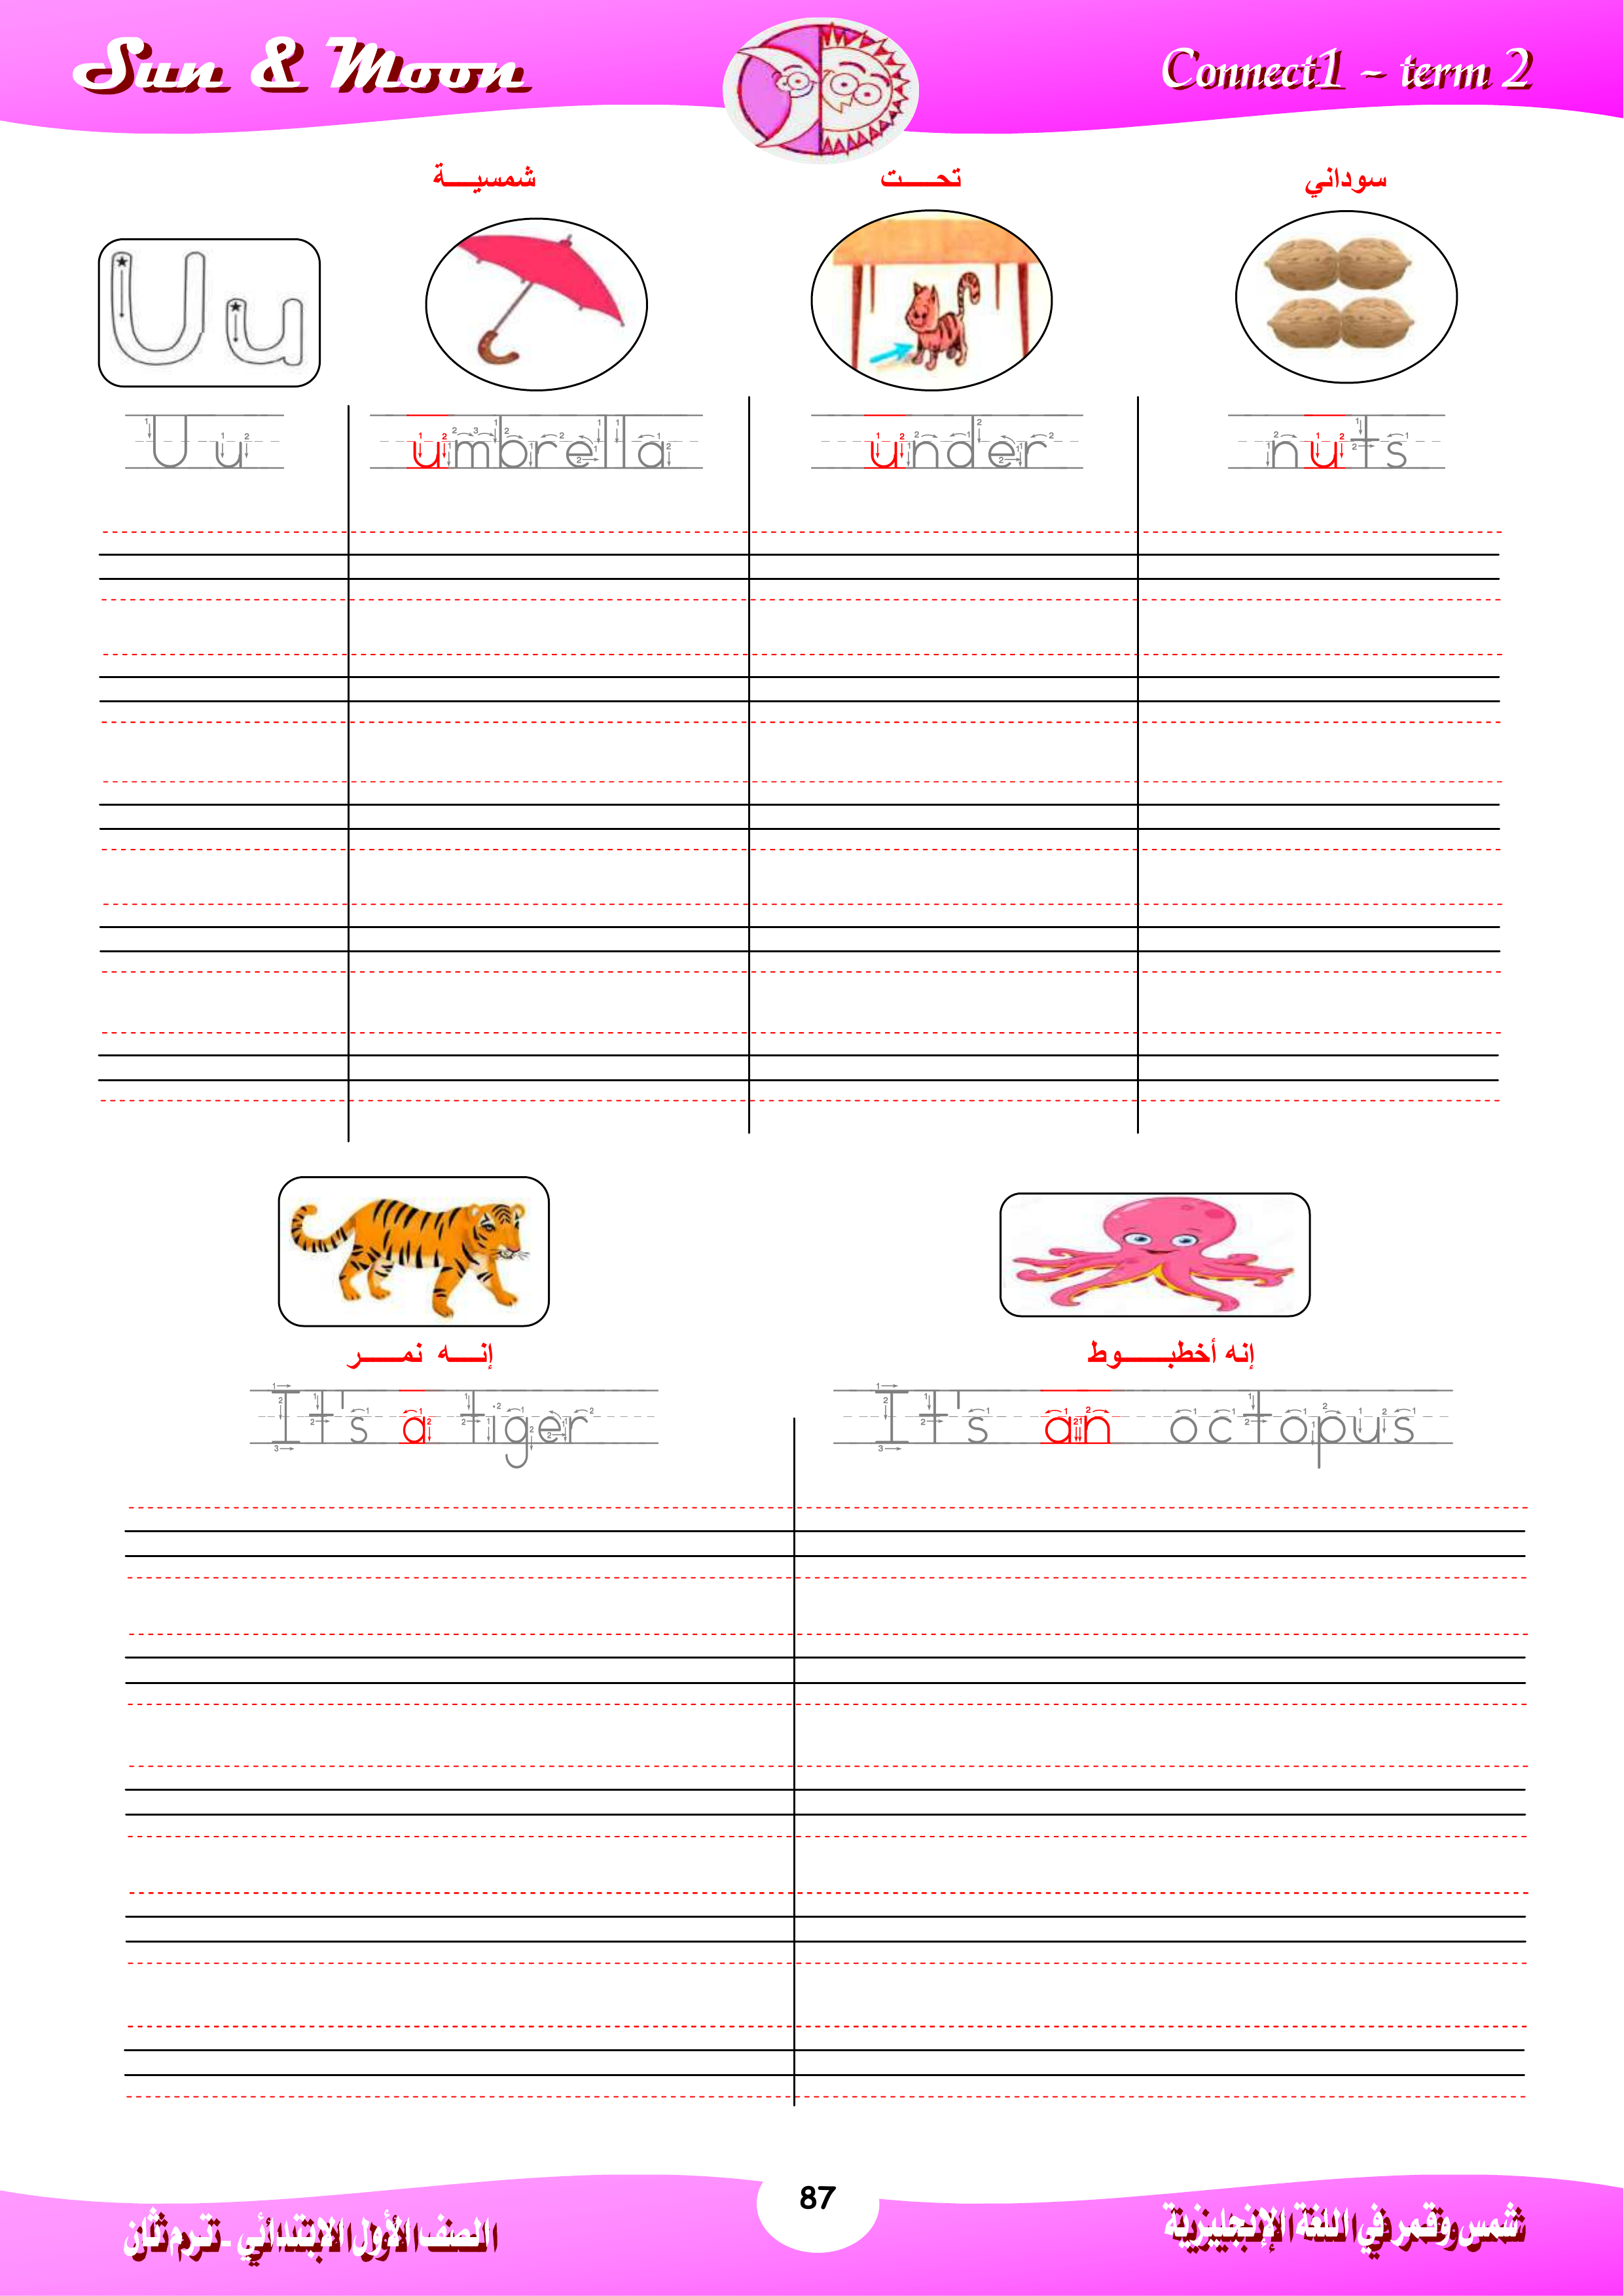 Sun & Moon
Connect1 – term 2
شمسية
تحت
سوداني
U u
U u
umbrella
under
nuts
إنه نمر
إنه أخطبوط
It's a tiger
It's an octopus
87
الصف الأول الابتدائي - ترم ثان
شمس وقمر في اللغة الإنجليزية